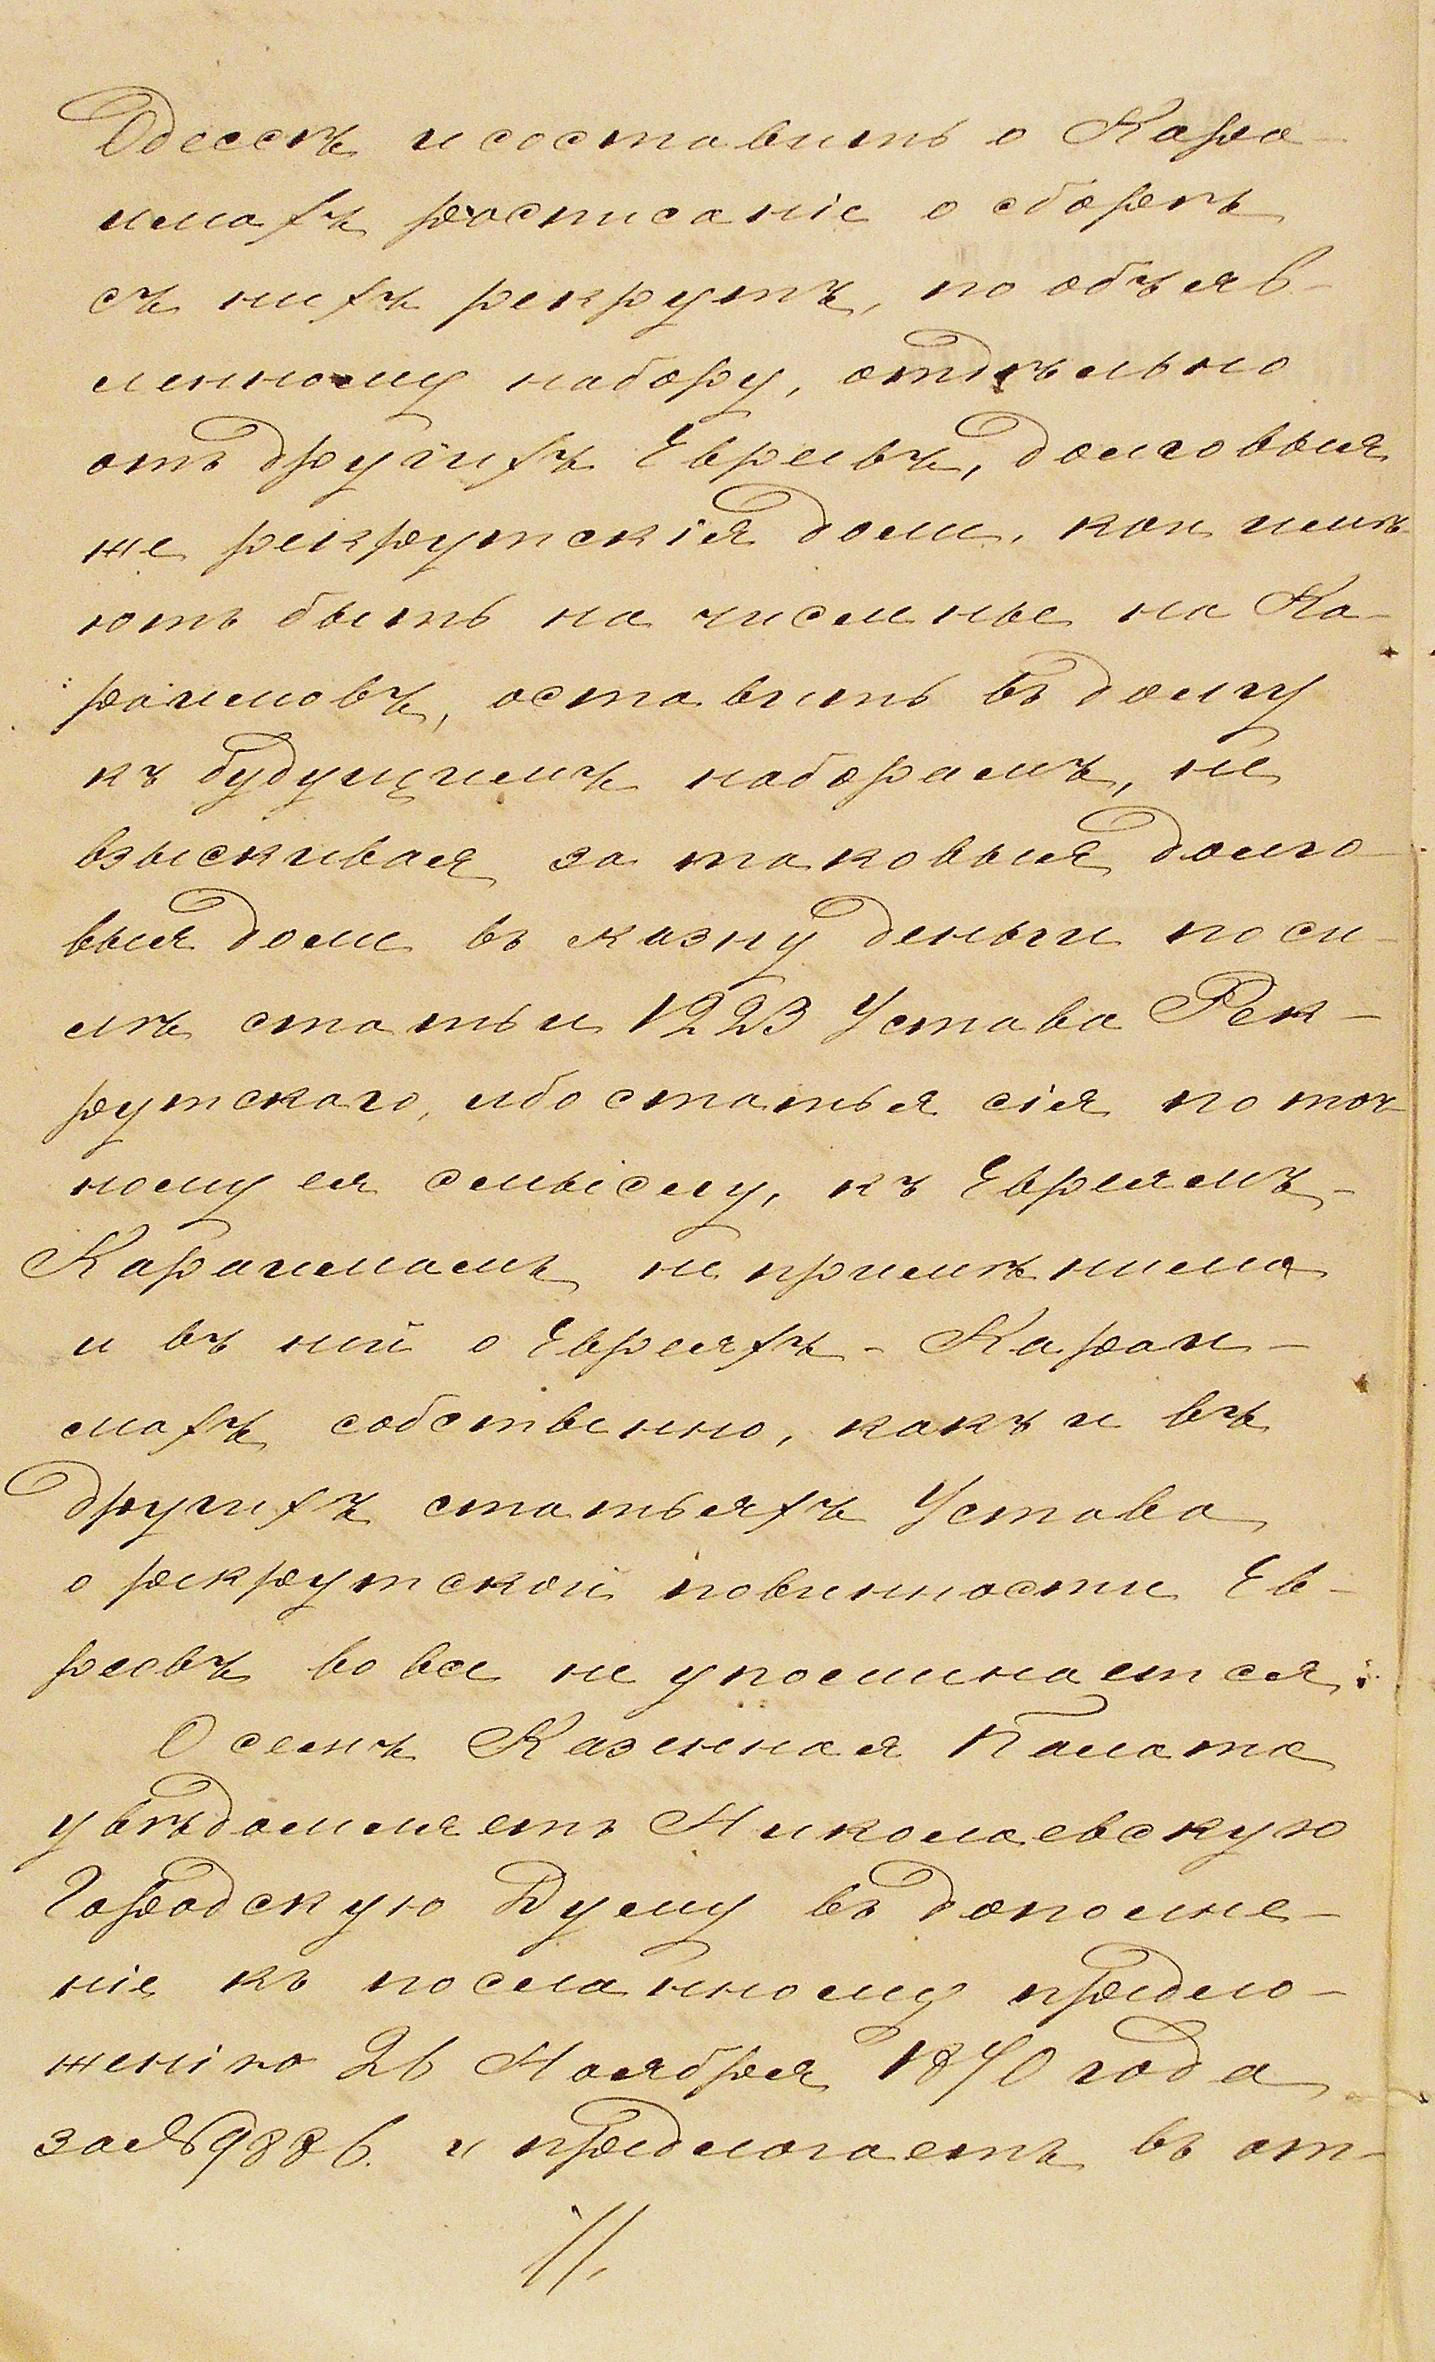 Одессѣ и составить о Кара-
имахъ росписаніе о сборѣ
съ нихъ рекрутъ, по объяв-
ленному набору, отдѣльно
отъ другихъ Евреевъ, долговыя
же рекрутскія доли, кои имѣ-
ютъ быть на численые на Ка-
раимовъ, оставить въ долгу
къ будущимъ наборамъ, не
взыскивая за таковыя долго-
выя доли въ казну деньги по си-
лѣ статьи 1223 Устава Рек-
рутскаго, ибо статья сія по точ-
ному ея смыслу, къ Евреямъ-
Караимамъ не примѣнима
и въ ней о Евреяхъ-Караи-
махъ собственно, какъ и въ
другихъ статьяхъ Устава
о рекрутской повинности Ев-
реевъ во все не упоминается.
О семъ Казенная Палата
увѣдомляетъ Николаевскую
Городскую Думу въ дополне-
ніе къ посланному предло-
женію 26 Ноября 1870 года
за № 9886. и предлагаетъ въ от-